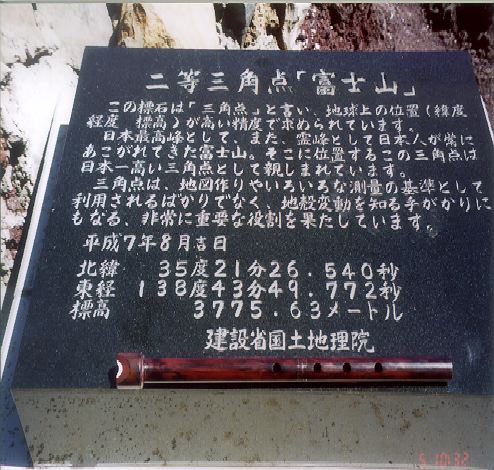 二等三角点「富士山」
この標石は「三角点」と言い、地球上の位置（緯度
経度、標高）が高い精度で求められています。
日本最高峰として、また、霊峰として日本人が常に
あこがれてきた富士山。そこに位置するこの三角点は
日本一高い三角点として親しまれています。
三角点は、地図作りやいろいろな測量の基準として
利用されるばかりでなく、地殻変動を知る手がかりに
もなる、非常に重要な役割を果たしています。
平成7年8月吉日
北緯 35度21分26.540秒
東経 138度43分49.772秒
標高 3775.63メートル
建設省国土地理院
5.10:32